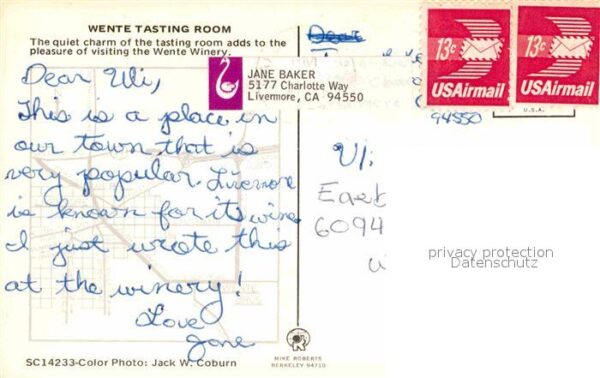 WENTE TASTING ROOM
The quiet charm of the tasting room adds to the
pleasure of visiting the Wente Winery.
Dear Uli,
This is a place in
our town that is
very popular. Livermore
is known for its wine
I just wrote this
at the winery!
Love
Jane
SC14233-Color Photo: Jack W. Coburn
MIKE ROBERTS
BERKELEY 94710
Dear
JANE BAKER
5177 Charlotte Way
Livermore, CA 94550
13c
USAirmail
13c
USAirmail
U.S.A.
94550
Uli
East
6094
privacy protection
Datenschutz